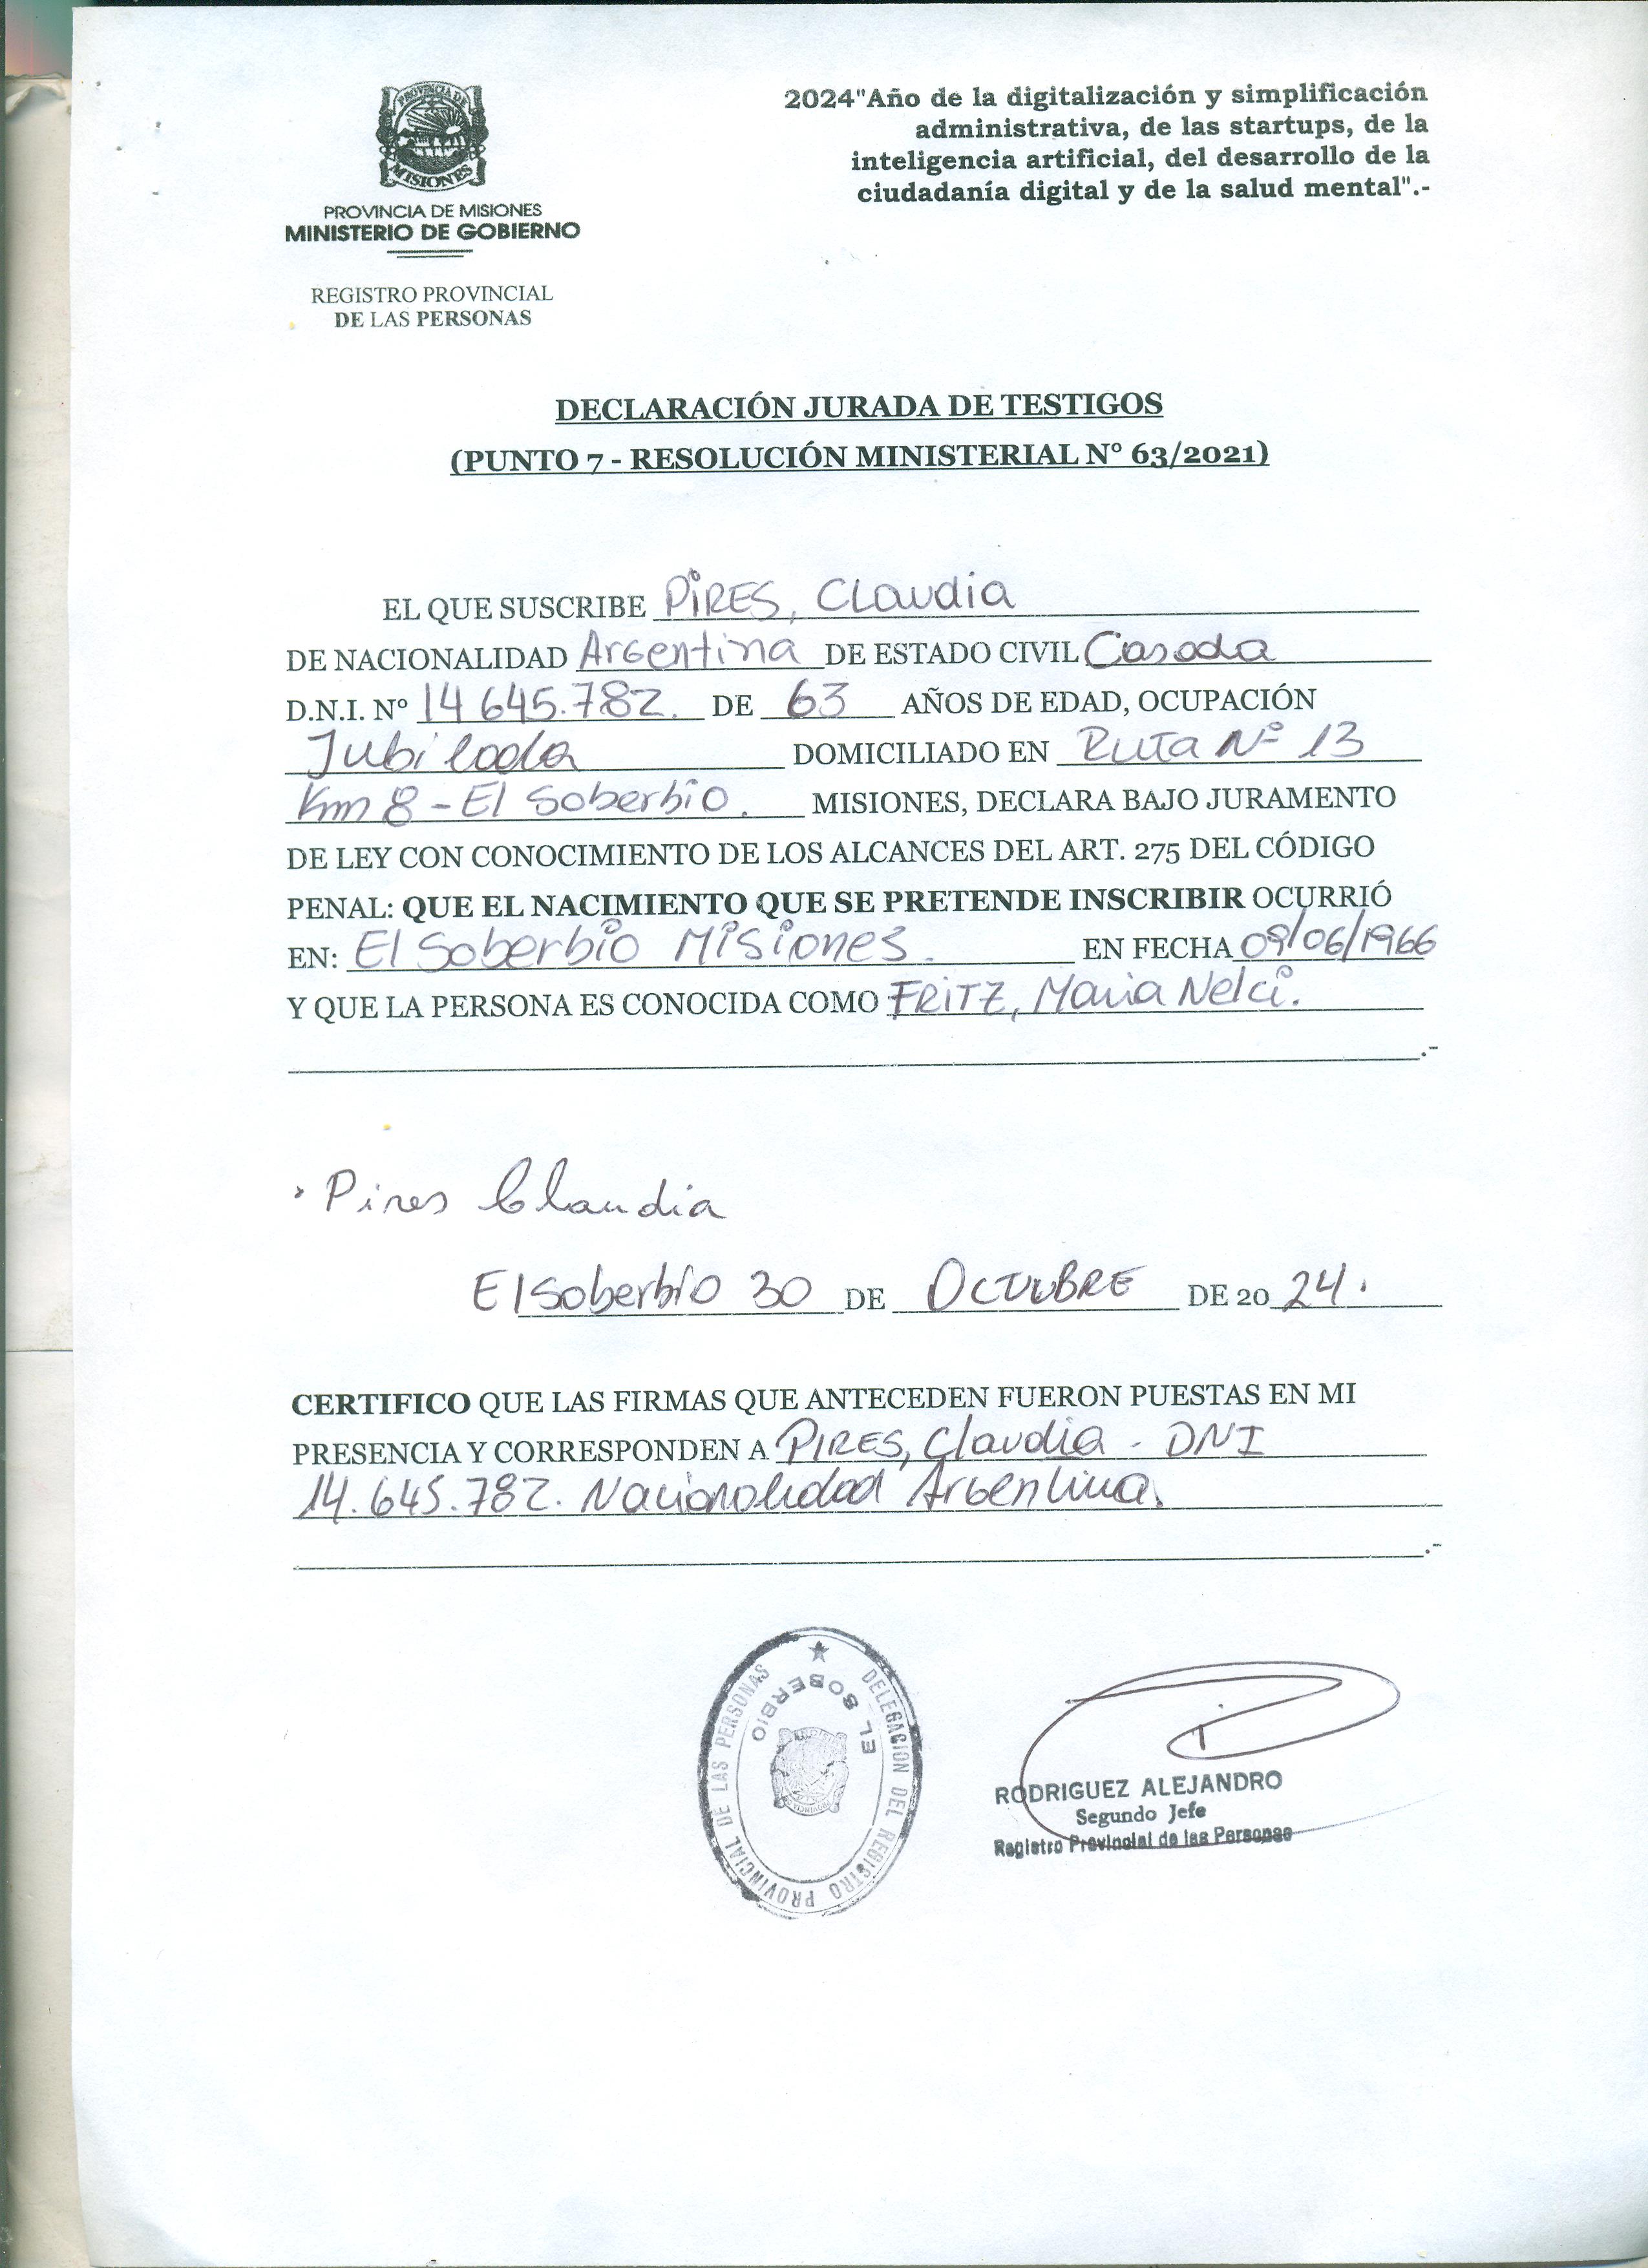 PROVINCIA DE
MISIONES
PROVINCIA DE MISIONES
MINISTERIO DE GOBIERNO
REGISTRO PROVINCIAL
DE LAS PERSONAS
2024"Año de la digitalización y simplificación
administrativa, de las startups, de la
inteligencia artificial, del desarrollo de la
ciudadanía digital y de la salud mental".-
DECLARACIÓN JURADA DE TESTIGOS
(PUNTO 7 - RESOLUCIÓN MINISTERIAL Nº 63/2021)
EL QUE SUSCRIBE PIRES, Claudia
DE NACIONALIDAD Argentina DE ESTADO CIVIL Casada
D.N.I. Nº 14 645.782. DE 63 AÑOS DE EDAD, OCUPACIÓN
Jubilada DOMICILIADO EN Ruta Nº 13
Km 8 - El Soberbio. MISIONES, DECLARA BAJO JURAMENTO
DE LEY CON CONOCIMIENTO DE LOS ALCANCES DEL ART. 275 DEL CÓDIGO
PENAL: QUE EL NACIMIENTO QUE SE PRETENDE INSCRIBIR OCURRIÓ
EN: El Soberbio Misiones. EN FECHA 09/06/1966
Y QUE LA PERSONA ES CONOCIDA COMO FRITZ, Maria Nelci.
.-
Pires Claudia
El Soberbio 30 DE OCTUBRE DE 20 24.
CERTIFICO QUE LAS FIRMAS QUE ANTECEDEN FUERON PUESTAS EN MI
PRESENCIA Y CORRESPONDEN A PIRES, Claudia - DNI
14.645.782. Nacionalidad Argentina.
.-
DELEGACION DEL REGISTRO PROVINCIAL DE LAS PERSONAS
EL SOBERBIO
RODRIGUEZ ALEJANDRO
Segundo Jefe
Registro Provincial de las Personas